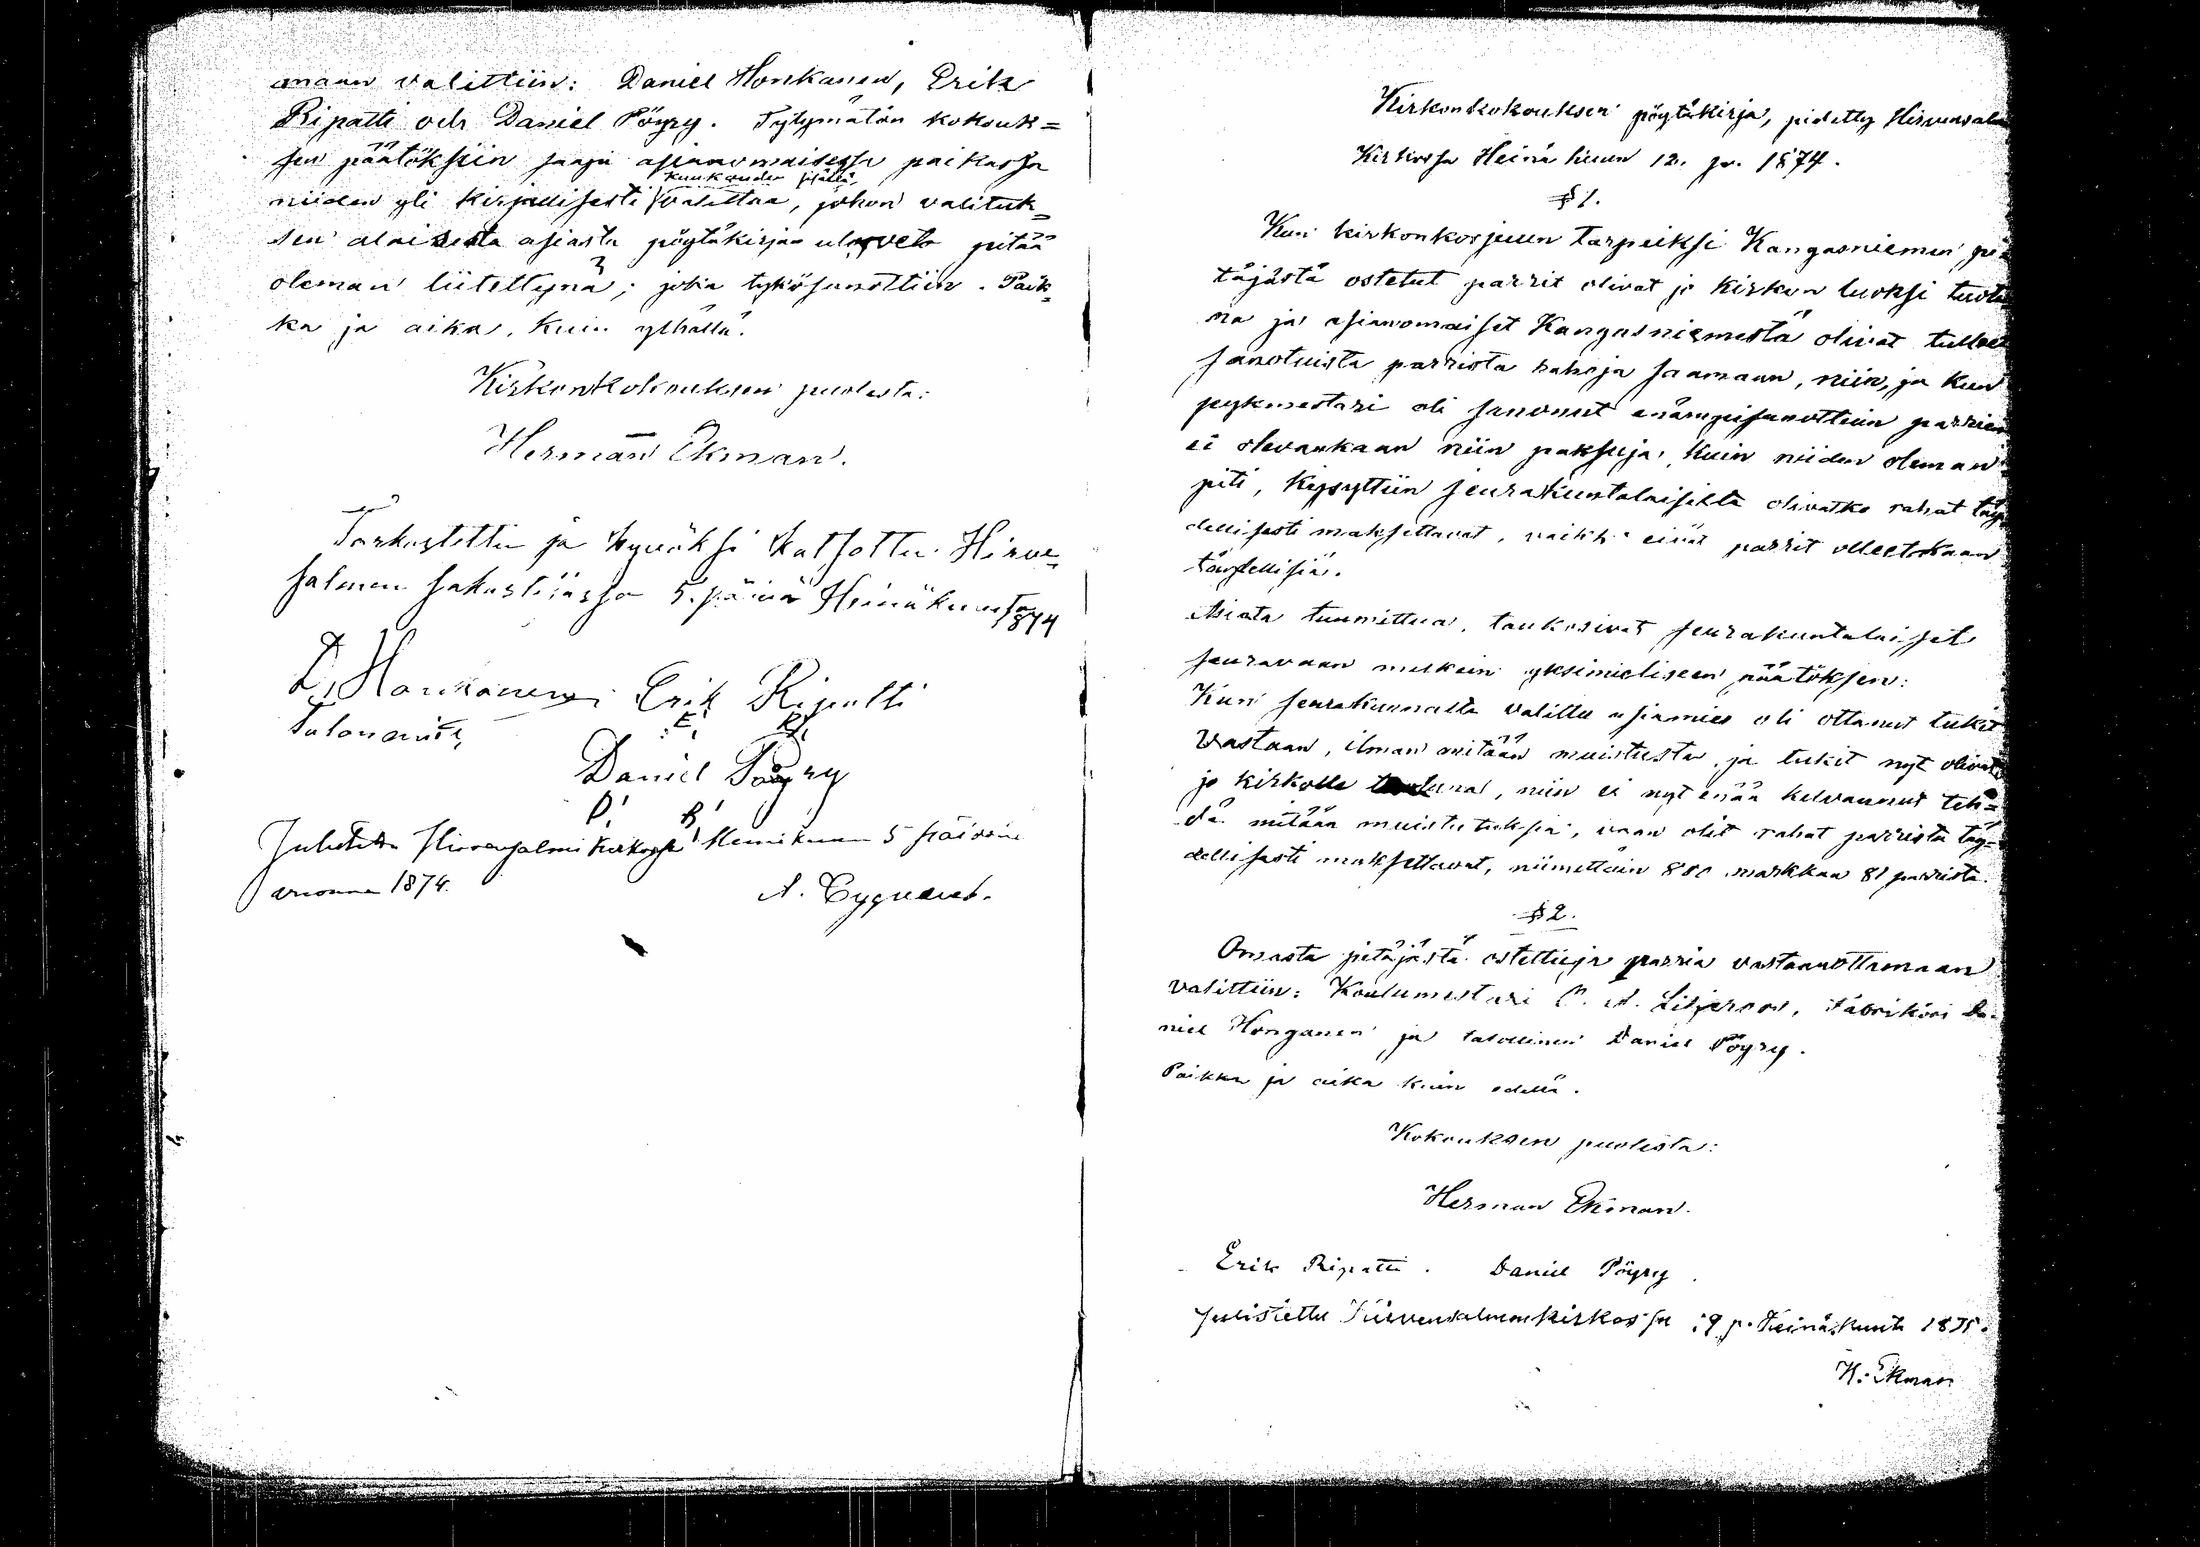 maan valittiin: Daniel Honkanen, Erik
Ripatti och Daniel Pöyry. Tytymätön kokouk=
sen päätöksiin saapi asianomaisessa paikassa
kuukauden sisällä
niiden yli kirjallisesti valittaa, johon valituk=
sen alaisesta asiasta pöytäkirjan ulosveto pitää
oleman liitettynä; joka tykösanottiin. Paik=
ka ja aika, kuin ylhällä.
Kirkonkokouksen puolesta:
Herman Ekman.
Tarkastettu ja hyväksi katsottu Hirve=
salmen sakastiiassa 5. päivä Heinäkuuta
1874
D. Honkanen Erik Ripatti
Talonmies, E. R.
Daniel Pöyry
D. P.
Julistettu Hirvensalmi kirkossa Heinikuun 5 päivänä
vuonna 1874.
A. Cygnaeus.
Kirkonkokouksen pöytäkirja, pidetty Hirvensalm
Kirkossa Heinäkuun 12. p. 1874.
§ 1.
Kun kirkonkorjuun tarpeiksi Kangasniemen pi=
täjästä ostetut parrit olivat jo kirkon luoksi tuotu
na ja asianomaiset Kangasniemestä olivat tulleet
sanotuista parrista rahoja saamaan, niin, ja kun
pykmestari oli sanonut enämpisanottuin parrien
ei olevankaan niin paksuja, kuin niiden oleman
piti, kysyttiin seurakuntalaisilta olivatko rahat täy
dellisesti maksettavat, vaikk' eivät parrit olleetkaan
täydellisiä.
Asiata tuumittua, taukosivat seurakuntalaiset
seuravaan melkein yksimieliseen päätöksen:
Kun seurakunnalta valittu asiamies oli ottanut tukit
vastaan, ilman mitään muistusta, ja tukit nyt olivat
jo kirkolle tuotuna, niin ei nyt enää kelvannut teh=
dä mitään muistutuksia, vaan olit rahat parrista täy=
dellisesti maksettavat, nimittäin 880 markkaa 81 parrista.
§ 2.
Omasta pitäjästä ostettuja parria vastaanottamaan
valittiin: Koulumestari C. A. Liljeroos, Fabriköri Da=
niel Honganen ja talollinen Daniel Pöyry.
Paikka ja aika kuin edellä.
Kokouksen puolesta:
Herman Ekman.
Erik Ripatti. Daniel Pöyry.
Julistettu Hirvensalmen kirkossa 19 p. Heinäkuuta 1875.
H. Ekman